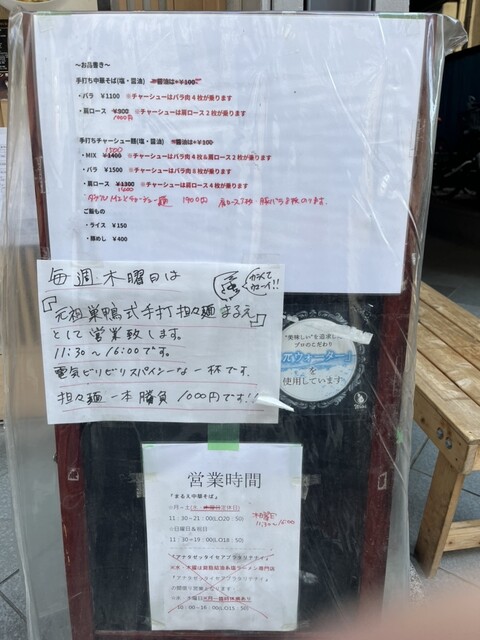 ～お品書き～
手打ち中華そば(塩・醤油) ※醤油は+￥100
・バラ ￥1100 ※チャーシューはバラ肉4枚が乗ります
・肩ロース ￥900 ※チャーシューは肩ロース2枚が乗ります
1000円
手打ちチャーシュー麺(塩・醤油) ※醤油は+￥100
1500
・MIX ￥1400 ※チャーシューはバラ肉4枚&肩ロース2枚が乗ります
・バラ ￥1500 ※チャーシューはバラ肉8枚が乗ります
・肩ロース ￥1300 ※チャーシューは肩ロース4枚が乗ります
1400
チャーシュー麺 1900円
ご飯もの
・ライス ￥150
・豚めし ￥400
毎週木曜日は
からくてウマーイ!!
『元祖巣鴨式手打担々麺まるえ』
として営業致します。
11:30～16:00です。
電気ビリビリスパイシーな一杯です。
担々麺一本勝負1000円です!!
"美味しい"を追求した
プロのこだわり
ウォーター」
を
使用しています
営業時間
「まるえ中華そば」
11:30～21:00(LO20:50)
木曜日
11:30～16:00
☆日曜日&祝日
11:30～19:00(LO18:50)
『アナタゼッタイセアブラカリテナイ』
10:00～16:00(LO15:50)